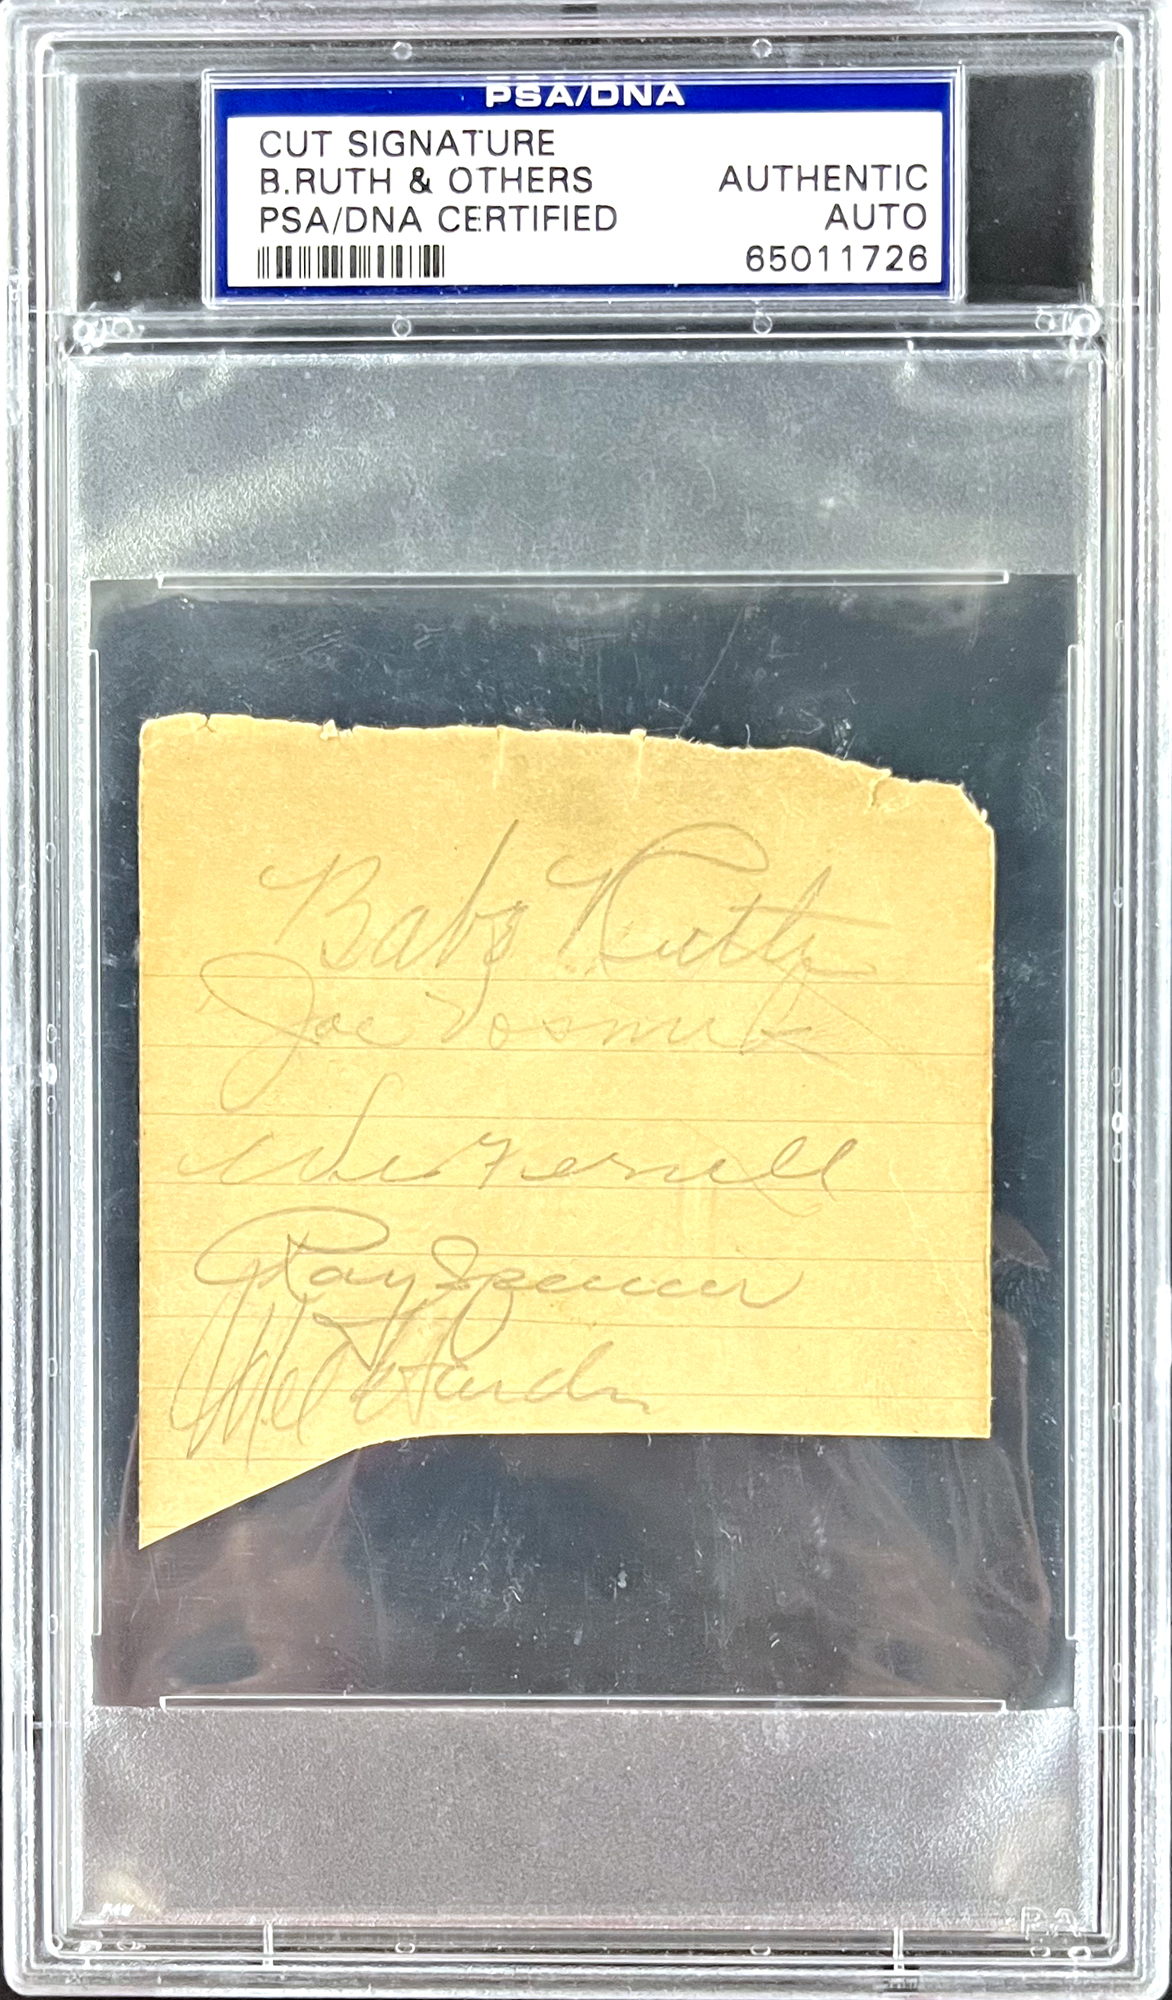 PSA/DNA
CUT SIGNATURE
B.RUTH & OTHERS AUTHENTIC
PSA/DNA CERTIFIED AUTO
65011726
Babe Ruth
Joe Vosmik
Wes Ferrell
Ray Spencer
Mel Harder
PSA